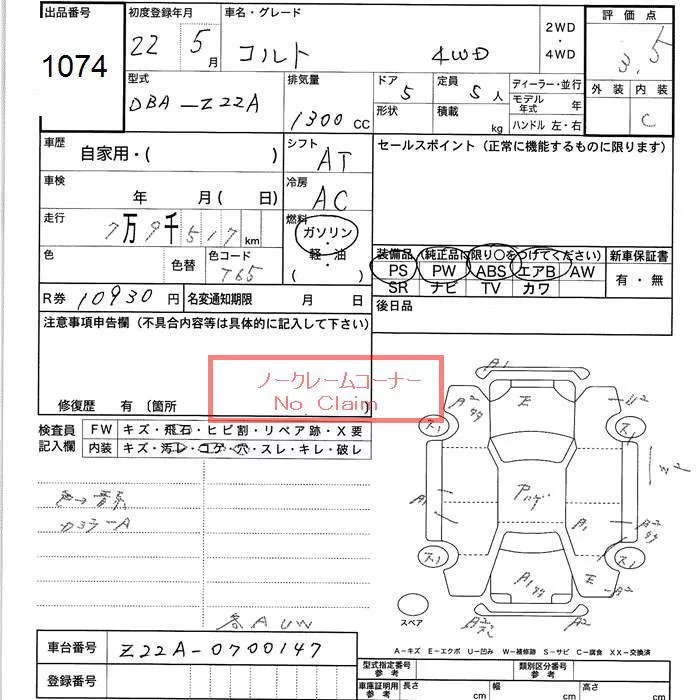 出品番号 初度登録年月 車名・グレード 2WD・4WD 評価点
1074 22年 5月 コルト 4WD 3.5
外装 内装 C
型式 排気量 ドア 5 定員 5人 ディーラー・並行
DBA-Z22A 1300cc 形状 積載 kg モデル年式 年
ハンドル 左・右
車歴 自家用・( ) シフト AT セールスポイント (正常に機能するものに限ります)
車検 年 月(日) 冷房 AC
走行 7万9千517km 燃料 ガソリン・軽・油 ( )
色 色替 色コード T65 装備品 (純正品に限り○をつけてください) 新車保証書
PS PW ABS エアB AW 有・無
SR ナビ TV カワ
R券 10930円 名変通知期限 月 日 後日品
注意事項申告欄 (不具合内容等は具体的に記入して下さい)
ノークレームコーナー
No Claim
修復歴 有 〔箇所
検査員記入欄 FW キズ・飛石・ヒビ割・リペア跡・X要
内装 キズ・汚レ・コゲ・穴・スレ・キレ・破レ
A1
E
A1
A1
A2
E
A2
スペア
各AUW
A-キズ E-エクボ U-凹み W-補修跡 S-サビ C-腐食 XX-交換済
車台番号 Z22A-0700147
登録番号
型式指定番号 参考 類別区分番号 参考
車庫証明用 参考 長さ cm 幅 cm 高さ cm